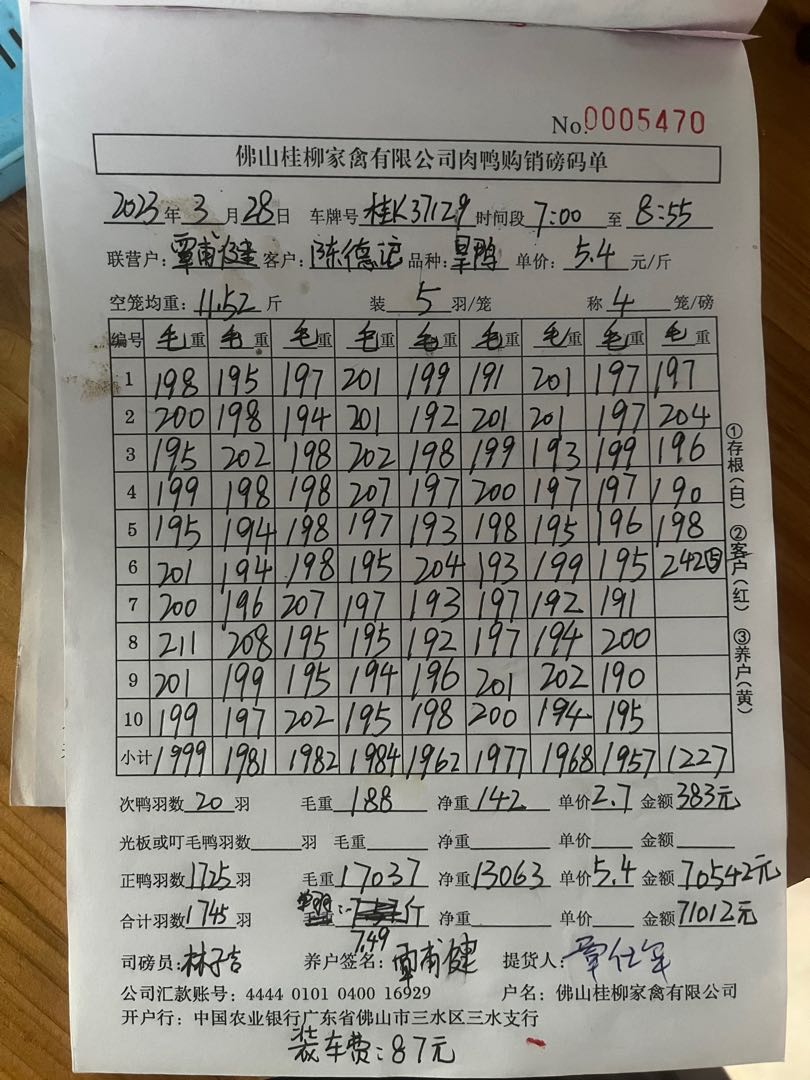 No.0005470
佛山桂柳家禽有限公司肉鸭购销磅码单
2023年3月28日 车牌号 桂K37129 时间段 7:00 至 8:55
联营户:覃甫健 客户:陈德 品种:鸭 单价:5.4元/斤
空笼均重:11.52斤 装 5 羽/笼 称 4 笼/磅
编号 毛重 毛重 毛重 毛重 毛重 毛重 毛重 毛重 毛重
1 198 195 197 201 199 191 201 197 197
2 200 198 194 201 192 201 201 197 204
3 195 202 198 202 198 199 193 199 196
4 199 198 198 207 197 200 197 197 190
5 195 194 198 197 193 198 195 196 198
6 201 194 198 195 204 193 199 195 242
7 200 196 207 197 193 197 192 191
8 211 208 195 195 192 197 194 200
9 201 199 195 194 196 201 202 190
10 199 197 202 195 198 200 194 195
小计 1999 1981 1982 1984 1962 1977 1968 1957 1227
①存根(白) ②客户(红) ③养户(黄)
次鸭羽数 20 羽 毛重 188 净重 142 单价 2.7 金额 383元
光板或叮毛鸭羽数 羽 毛重 净重 单价 金额
正鸭羽数 1725 羽 毛重 17037 净重 13063 单价 5.4 金额 70542元
合计羽数 1745 羽 斤 净重 单价 金额 71012元
7.49
司磅员:林子吉 养户签名:覃甫健 提货人:
公司汇款账号:4444 0101 0400 16929 户名:佛山桂柳家禽有限公司
开户行:中国农业银行广东省佛山市三水区三水支行
装车费:87元